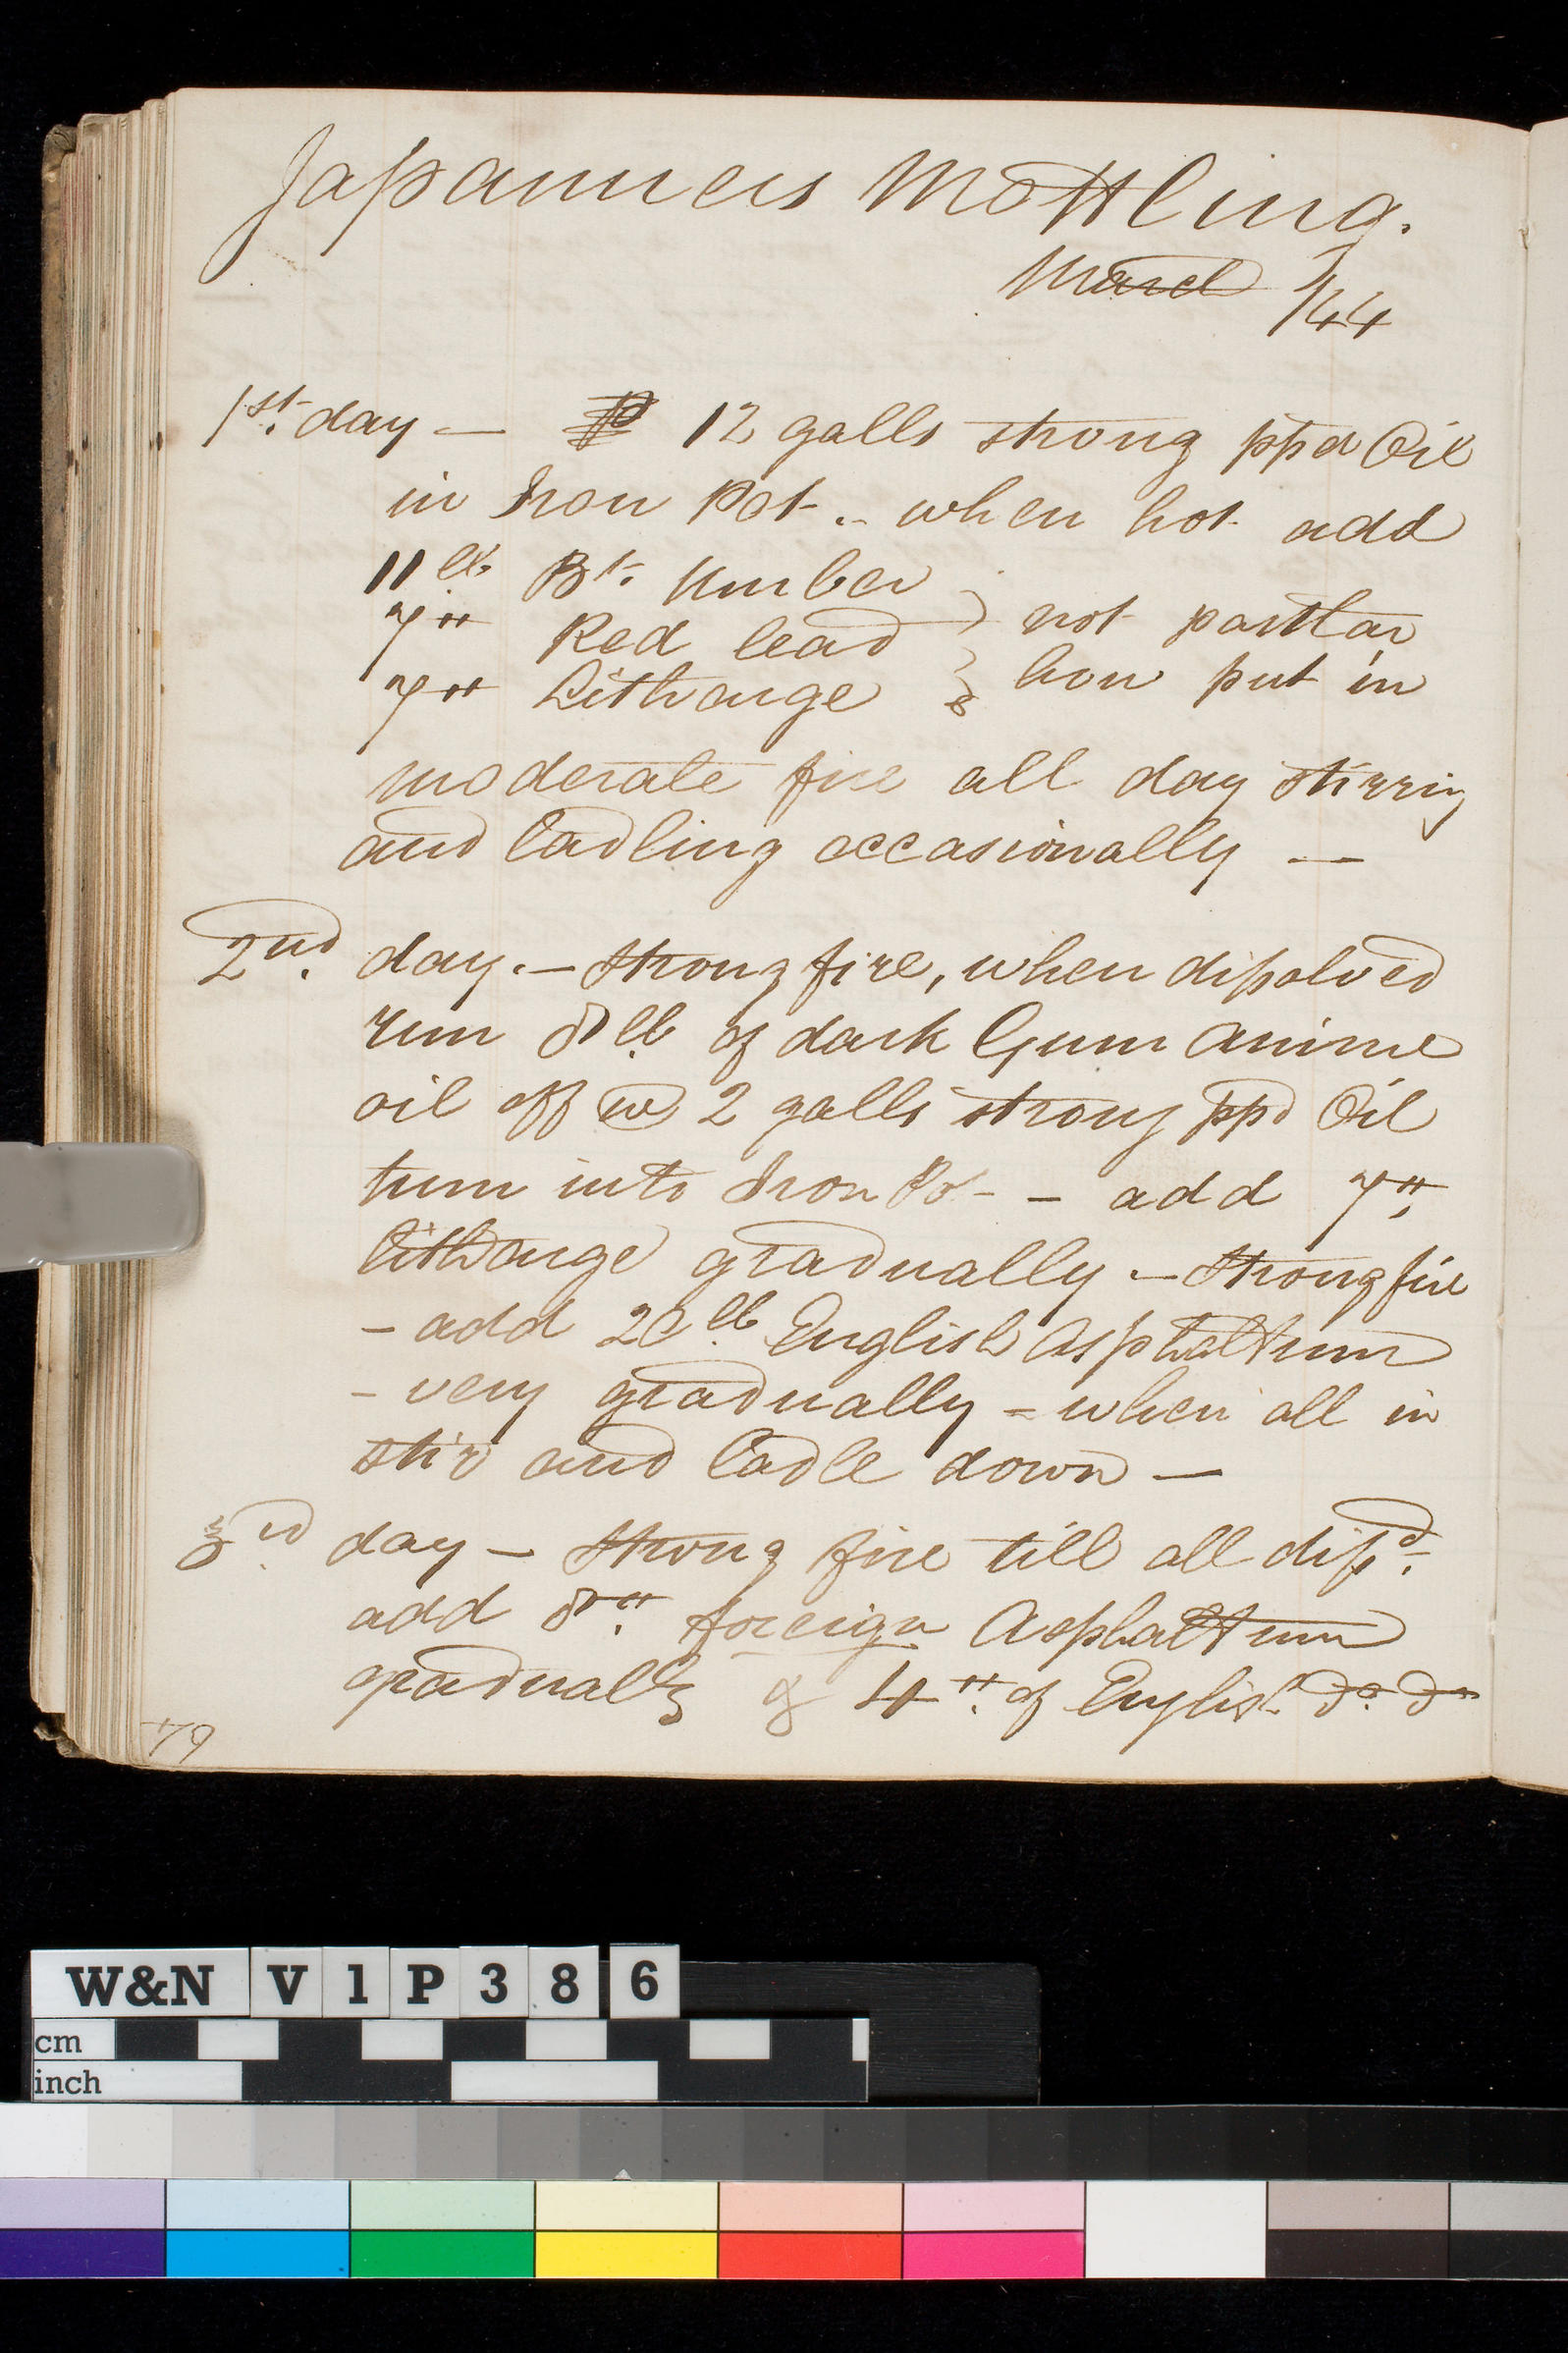 Japanners Mottling.
March /44
1st. day — 12 galls strong ppd Oil
in Iron Pot .. when hot add
11 lb Bt. Umber
7 " Red lead } not partlar
7 " Litharge } how put in
moderate fire all day stirring
and ladling occasionally —
2nd. day. — Strong fire, when dissolved
run 8 lb of dark Gum Anime
oil off w 2 galls strong ppd Oil
turn into Iron Pot — add 7 "
litharge gradually — Strong fire
- add 20 lb English Asphaltum
- very gradually - when all in
stir and ladle down —
3rd day — Strong fire till all dissd.
add 8 " foreign Asphaltum
gradually & 4 " of English do. do
79
W&N V1P386
cm
inch